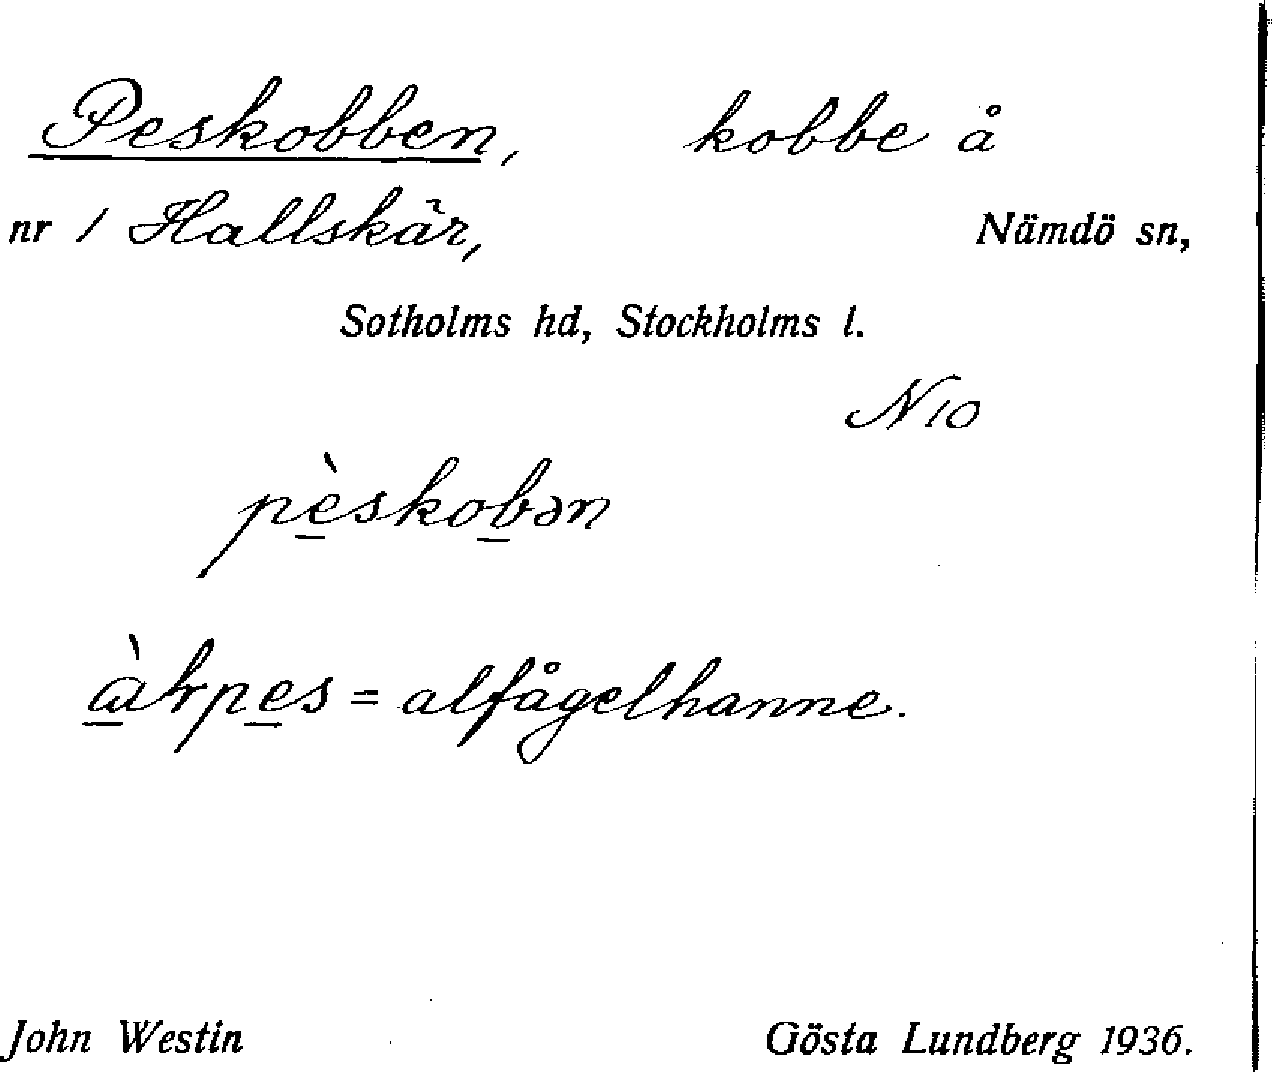 Peskobben, kobbe å
nr 1 Hallskär, Nämdö sn,
Sotholms hd, Stockholms l.
N 10
pèskobən
= alfågelhanne.
John Westin Gösta Lundberg 1936.